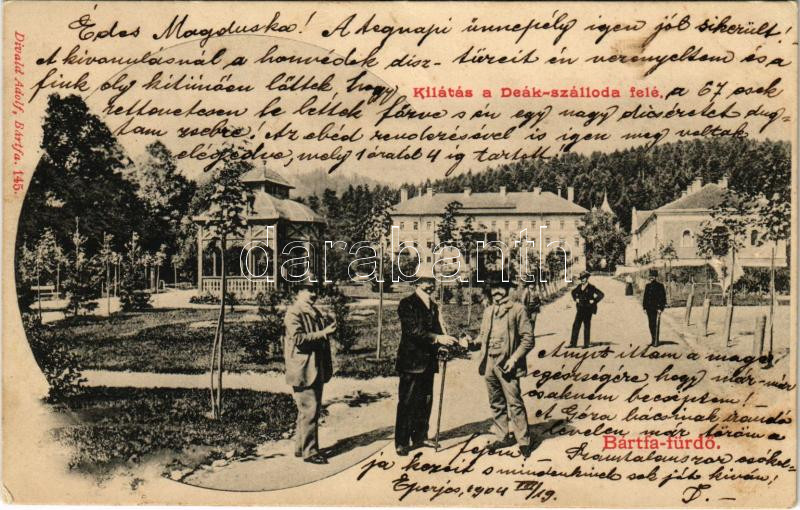 Édes Magduska! A tegnapi ünnepély igen jól sikerült!
A kivonulásnál a honvédek dísz-tüzeit én vezényeltem és a
fiuk oly kitünően lőttek, hogy a 67 esek
rettenetesen le lettek főzve s én egy nagy dicséretet dug-
tam zsebre! Az ebéd rendezésével is igen meg voltak
elégedve, mely 1 órától 4 ig tartott.
Kilátás a Deák-szálloda felé.
Divald Adolf, Bártfa. 145.
darabanth.com
Annyit ittam a maga
egészségére hogy már-már
csaknem becsíptem!
A Géza bácsinak irandó
levelen már töröm a
fejem.
Bártfa-fürdő.
kezeit s mindenkinek sok jót kiván!
Eperjes, 1904 VIII/19.